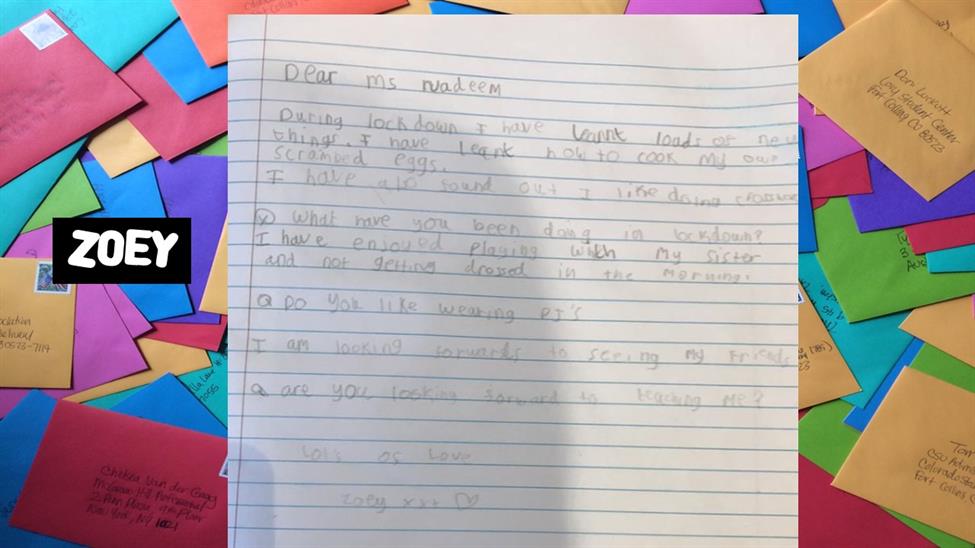 ZOEY
Dear Ms Nadeem
During lockdown I have learnt loads of new
things. I have learnt how to cook my own
scrambed eggs.
I have also found out I like doing
Q What have you been doing in lockdown?
I have enjoyed playing with my sister
and not getting dressed in the morning.
Q Do you like wearing PJ's
I am looking forwards to seeing my friends
Q are you looking forward to teaching me?
Lots of Love
Zoey xxx
Don Luckett
Lory Student Center
Fort Collins CO 80523
80523-7119
Chelsea Van der Gaag
McGraw-Hill Professional
2 Penn Plaza, 9th Floor
New York, NY
Tom
CSU
Colorado
Fort Collins